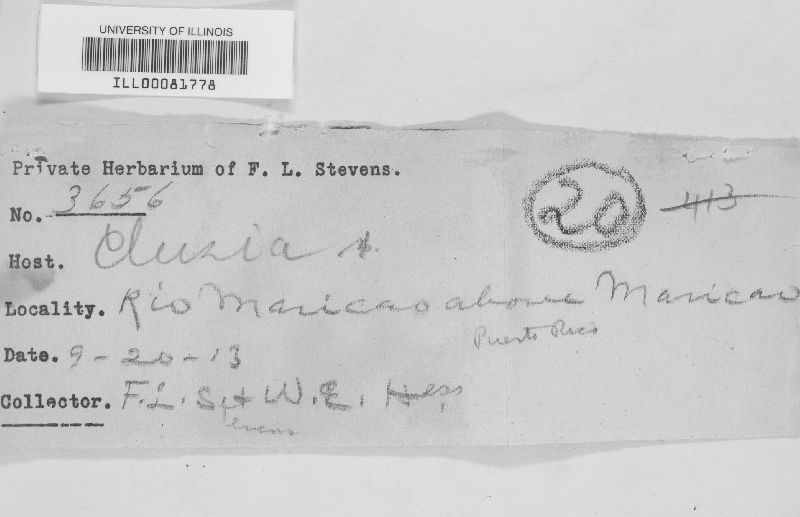 UNIVERSITY OF ILLINOIS
ILL00081778
Private Herbarium of F. L. Stevens.
20 413
No. 3656
Host. Clusia
Locality. Rio Maricao above Maricao
Puerto Rico
Date. 9-20-13
Collector. F.L. S. + W.E. Hess
evens